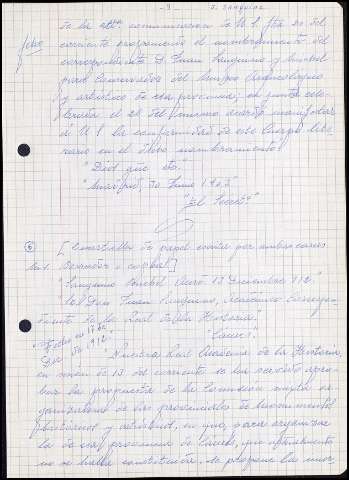 - 3 - J. SANGUINO
de la atta. comunicacion de U. S. fha 20 del
corriente proponiendo el nombramiento del
correspondiente D. Juan Sanguino y Michel
para Conservador del Museo Arqueologico
y artístico de esa provincia; en junta cele-
brada el 28 del mismo acordó manifestar
á U. S. la conformidad de este Cuerpo lite-
rario en el dicho nombramiento."
"Dios gue. etc."
"Madrid, 30 Junio 1903"
"El Secret."
6 [cuartilla de papel escrita por ambas caras
"Sanguino Michel. Acad. 13 Diciembre 912."
"Sr. D. Juan Sanguino, Académico Correspon-
diente de la Real de la Historia."
Cáceres."
Dic. de 1912."
"Nuestra Real Academia de la Historia,
en sesión de 13 del corriente se ha servido apro-
bar la propuesta de la Comisión mixta or-
ganizadora de las provinciales de Monumentos
históricos y artísticos, en que, para organizar
la de esa provincia de Cáceres, que actualmente
no se halla constituida, se propone los nom-